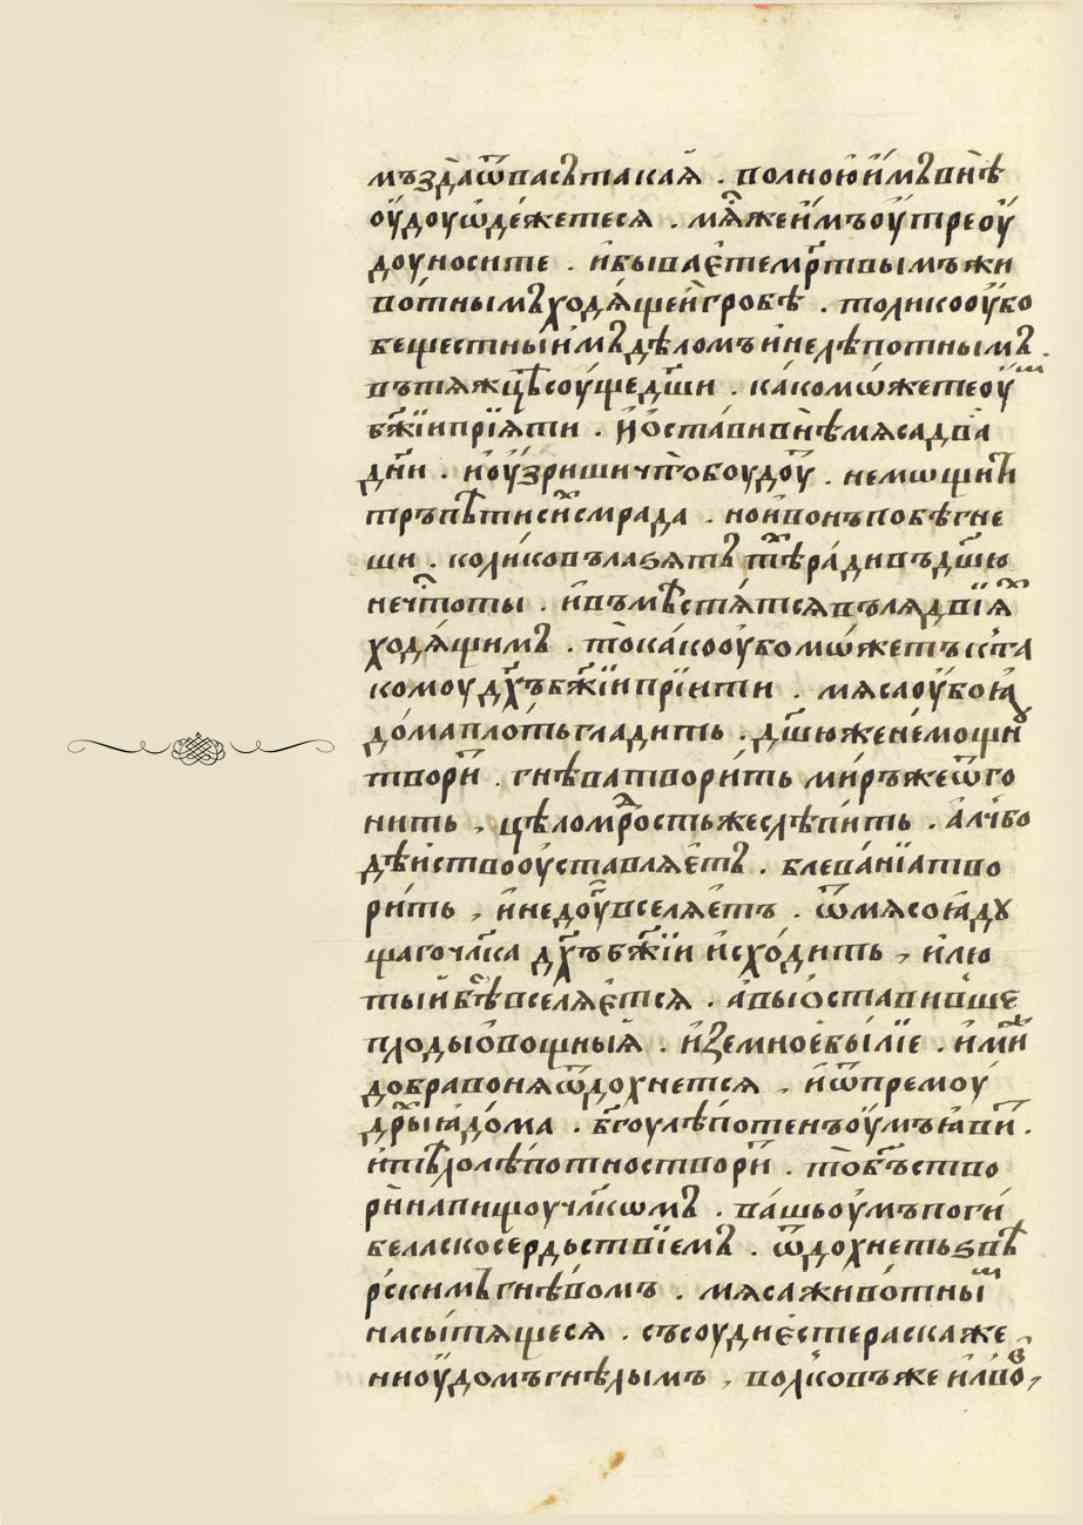 мъзда̀ѿвасътакаѧ̀ . волною́и҆мъвнѣ̀
оу҆доуѡ҆де́жетесѧ . мѧ҆жеи҆мъоу҆треоу҆
доуносите . и҆быває́темр҃твымъжи
во́тнымъходѧ́щеи҆гробѣ . толикооу҆бо
бещестны́имъдѣломъи҆нелѣпотнымъ .
вътѧжцѣ̑соу́щедш҃и . ка́комѡ́жетеоу҆ш
бж҃їипрїѧ́ти . и҆ѡ҆ста́вивнѣмѧсадва̀
дн҃и . и҆оу҆зришичто̀боудоу҆ . немощны́и
тръпѣтисиѐсмрада . нои҆вонъпобѣгне
ши . коли́ковълаѕѧтъ тѣра́дивъдш҃ю
нечⷭ҇тоты . и҆въмѣстѧ́тсѧвълѧдвїѧⷯ
ходѧ́щимъ . то̀ка́кооу҆бомѡ́жетъкта
комоудх҃ъбж҃їиприїити . мѧсаоу҆боꙗ
до́маплоть̀гладить . дш҃южене́мощнꙋ
твори́т . гнѣватвори́ть ми́ръжеѿго
нить , цѣломрⷣостьжеслѣпи́ть . а҆лчбо
дѣиствооу҆ставлѧ́етъ . блева́нїатво
ри́ть , и҆недоу҆гвселѧ́етъ . ѿмѧсоꙗ́дꙋ
щагочл҃ка дх҃ъбж҃їи и҆схо́дить , и҆лю
тыи҆бѣ́свселѧ́етсѧ . а҆выѡ҆ставивше
плодыо҆вощныѧ̀ . и҆ꙁемное́бы́лїе . и҆мⷤи
добравонѧѿдохнетсѧ , и҆ѿпремоу́
дрⷯыꙗдо́ма . бг҃оулѣ́потенъоу҆мъꙗ҆ви́т .
и҆тѣлолѣ́потноствори́т . то̀бг҃ъство
рѝнапищоучл҃кѡмъ . ва́шьоу҆мъпоги́
беласкосердьствїемъ . ѿдохнетьѕвѣ
рскимъгнѣ́вомъ . мѧсаживо́тныⷯ
насы́тѧщесѧ . съсоуднє́стераскаже
нноу҆домъгнѣлымъ , волковъже и҆лвѡ́в ,